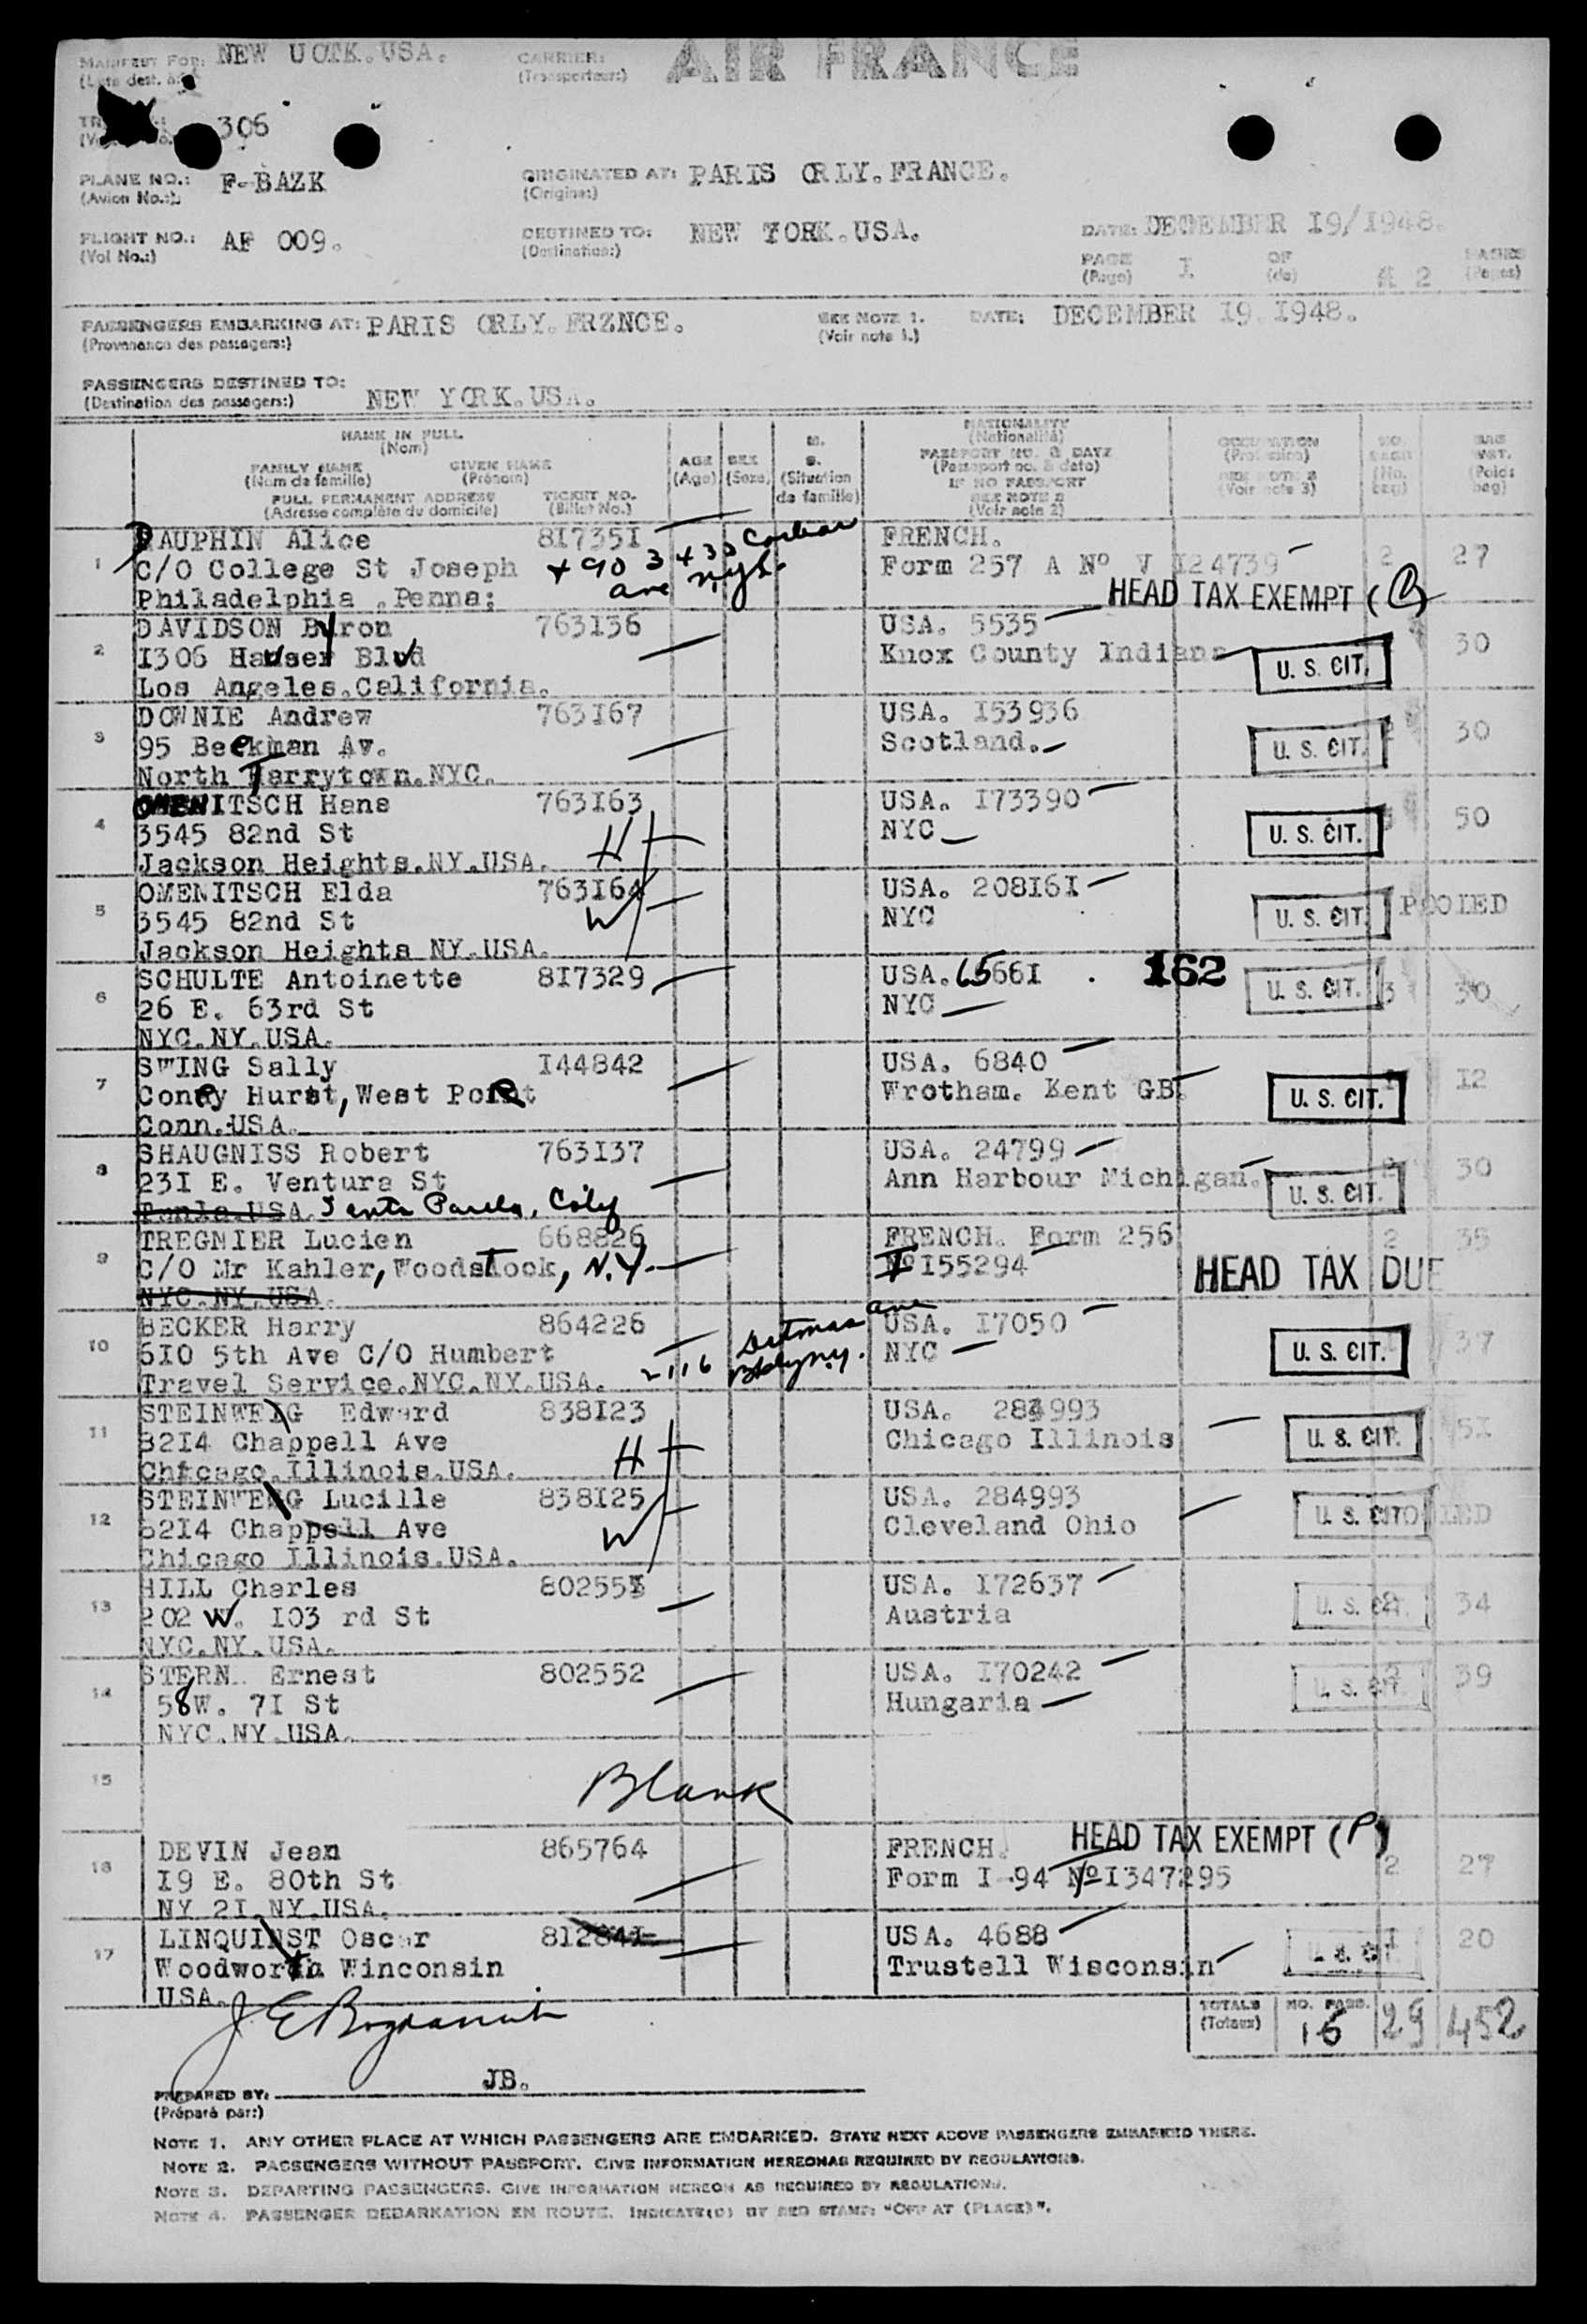 MANIFEST FOR: NEW UOTK.USA. CARRIER: AIR FRANCE
(Transporteur:)
306
PLANE NO.: F-BAZK ORIGINATED AT: PARIS ORLY.FRANCE.
(Avion No.:) (Origine:)
FLIGHT NO.: AF 009. DESTINED TO: NEW YORK.USA. DATE: DECEMBER I9/I948.
(Vol No.:) (Destination:)
PAGE I OF 2 PAGES
(Page) (de) (Pages)
PASSENGERS EMBARKING AT: PARIS ORLY.FRZNCE. SEE NOTE 1. DATE: DECEMBER I9.I948.
(Provenance des passagers:) (Voir note 1.)
PASSENGERS DESTINED TO:
(Destination des passagers:) NEW YORK.USA.
NAME IN FULL
(Nom)
FAMILY NAME GIVEN NAME
(Nom de famille) (Prénom)
FULL PERMANENT ADDRESS TICKET NO.
(Adresse complète du domicile) (Billet No.)
AGE SEX M. S.
(Age) (Sexe) (Situation de famille)
NATIONALITY
(Nationalité)
PASSPORT NO. & DATE
(Passeport no. & date)
IF NO PASSPORT
SEE NOTE 2
(Voir note 2)
OCCUPATION
(Profession)
SEE NOTE 3
(Voir note 3)
1 DAUPHIN Alice 8I735I FRENCH.
C/O College St Joseph Form 257 A Nº V I24739 2 27
Philadelphia .Penna: Ave HEAD TAX EXEMPT
2 DAVIDSON Byron 763I36 USA. 5535
I306 Hauser Blvd Knox County Indiana U. S. CIT. 30
Los Angeles.California.
3 DOWNIE Andrew 763I67 USA. I53936
95 Beekman Av. Scotland. U. S. CIT. 30
North Tarrytown.NYC.
4 OMENITSCH Hans 763I63 USA. I73390
3545 82nd St H NYC U. S. CIT. 50
Jackson Heights.NY.USA.
5 OMENITSCH Elda 763I64 USA. 208I6I
3545 82nd St W NYC U. S. CIT. POOLED
Jackson Heights NY.USA.
6 SCHULTE Antoinette 8I7329 USA.6566I . 162
26 E. 63rd St NYC U. S. CIT. 3 30
NYC.NY.USA.
7 SWING Sally I44842 USA. 6840
Coney Hurst, West Point Wrotham. Kent GB. U. S. CIT. I2
Conn.USA.
8 SHAUGNISS Robert 763I37 USA. 24799
23I E. Ventura St Ann Harbour Michigan. U. S. CIT. 30
USA. Santa Paula, Calif
9 TREGNIER Lucien 668826 FRENCH. Form 256 2 35
C/O Mr Kahler, Woodstock, N.Y. I55294 HEAD TAX DUE
NYC.NY.USA.
10 BECKER Harry 864226 USA. I7050
6I0 5th Ave C/O Humbert 2116 Ditmas Ave NYC U. S. CIT. 37
Travel Service.NYC.NY.USA. Bklyn N.Y.
11 STEINWEIG Edward 838I23 USA. 284993
8214 Chappell Ave H Chicago Illinois U. S. CIT. 5I
Chicago.Illinois.USA.
12 STEINWEIG Lucille 838I25 USA. 284993
82I4 Chappell Ave W Cleveland Ohio U. S. CIT. POOLED
Chicago Illinois.USA.
13 HILL Charles 80255I USA. I72637
202 W. I03 rd St Austria U. S. CIT. 2 34
NYC.NY.USA.
14 STERN Ernest 802552 USA. I70242
58W. 7I St Hungaria U. S. CIT. 2 39
NYC.NY.USA.
15 Blank
16 DEVIN Jean 865764 FRENCH. HEAD TAX EXEMPT (P)
I9 E. 80th St Form I-94 Nº I347295 2 27
NY 2I.NY.USA.
17 LINQUIST Oscar 81284I USA. 4688
Woodworth Winconsin Trustell Wisconsin U. S. CIT. I 20
USA.
TOTALS NO. PASS.
(Totaux) 16 29 452
JB.
PREPARED BY:
(Préparé par:)
NOTE 1. ANY OTHER PLACE AT WHICH PASSENGERS ARE EMBARKED. STATE NEXT ABOVE PASSENGERS EMBARKED THERE.
NOTE 2. PASSENGERS WITHOUT PASSPORT. GIVE INFORMATION HEREONAS REQUIRED BY REGULATIONS.
NOTE 3. DEPARTING PASSENGERS. GIVE INFORMATION HEREON AS REQUIRED BY REGULATIONS.
NOTE 4. PASSENGER DEBARKATION EN ROUTE. INDICATE(D) BY RED STAMP: "OFF AT (PLACE)".